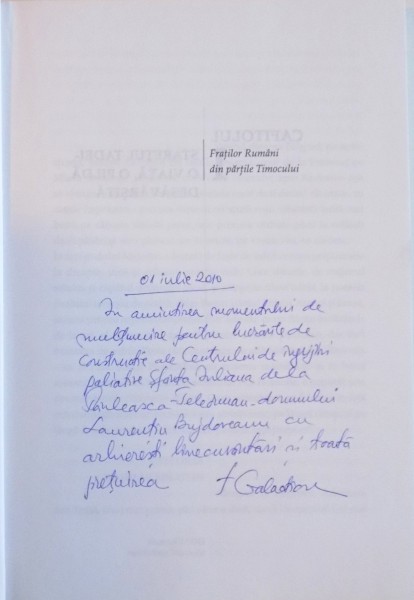 Fraților Rumâni
din părțile Timocului
01 iulie 2010
In amintirea momentului de
mulțumire pentru lucrările de
construcție ale Centrului de îngrijiri
paliative Sfânta Iuliana de la
Teleorman - domnului
Laurențiu Bujdoveanu cu
arhierești binecuvântări și toată
prețuirea † Galaction